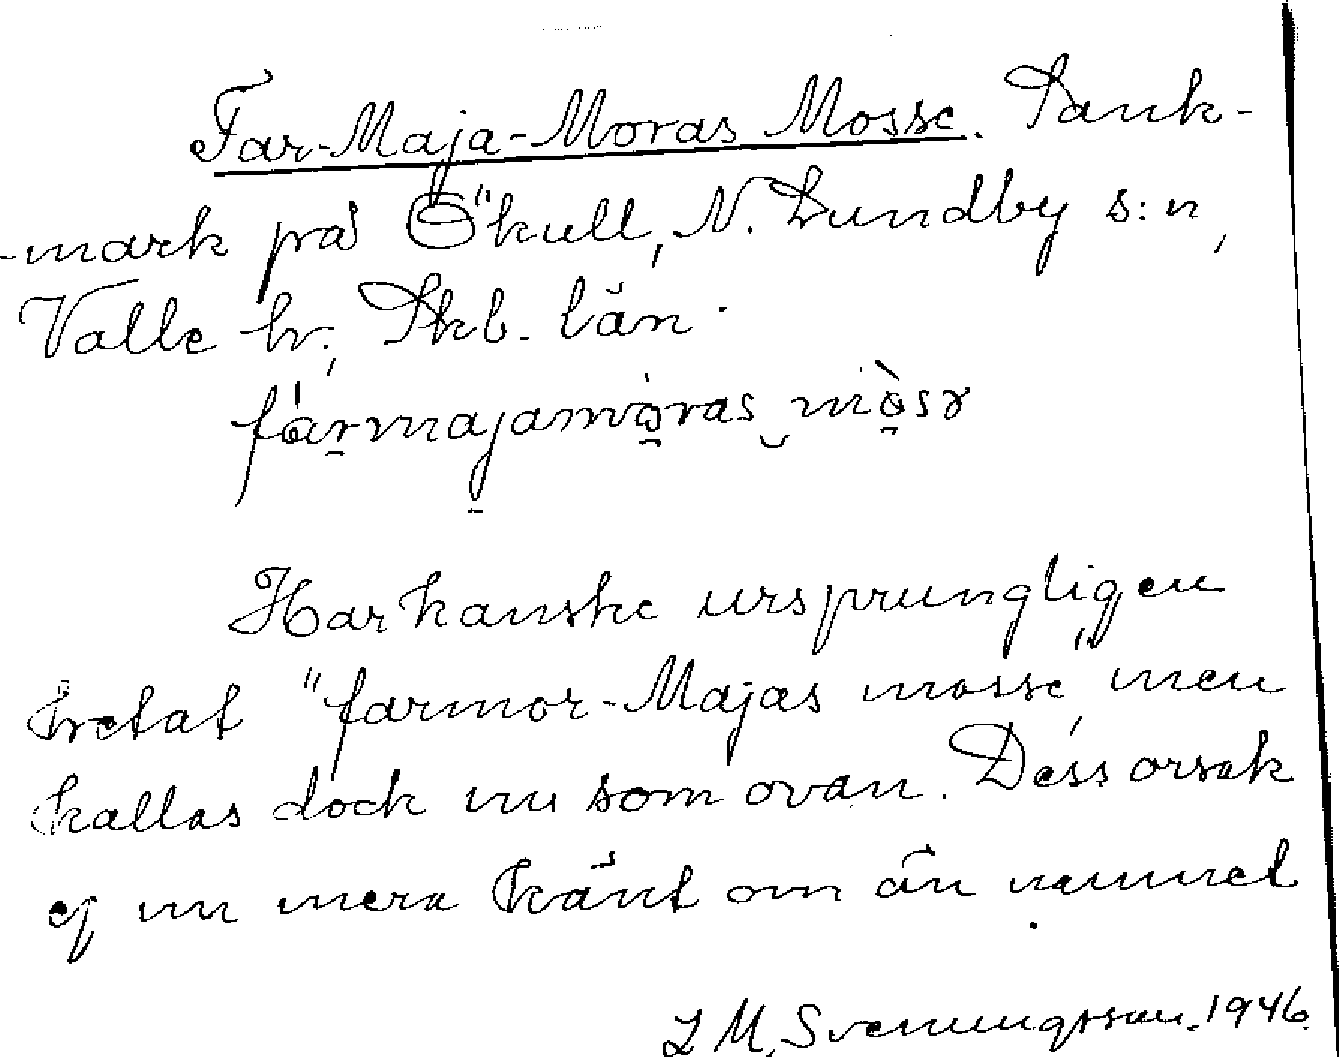 Far-Maja-Moras Mosse. Sank-
-mark på Ökull, N. Lundby s:n,
Valle hr; Skb. län.
fármajamóras mòsɤ
Har kanske ursprungligen
hetat "farmor-Majas mosse" men
kallas dock nu som ovan. Dess orsak
ej nu mera känt om än namnet.
L M, Svenungsson. 1946.